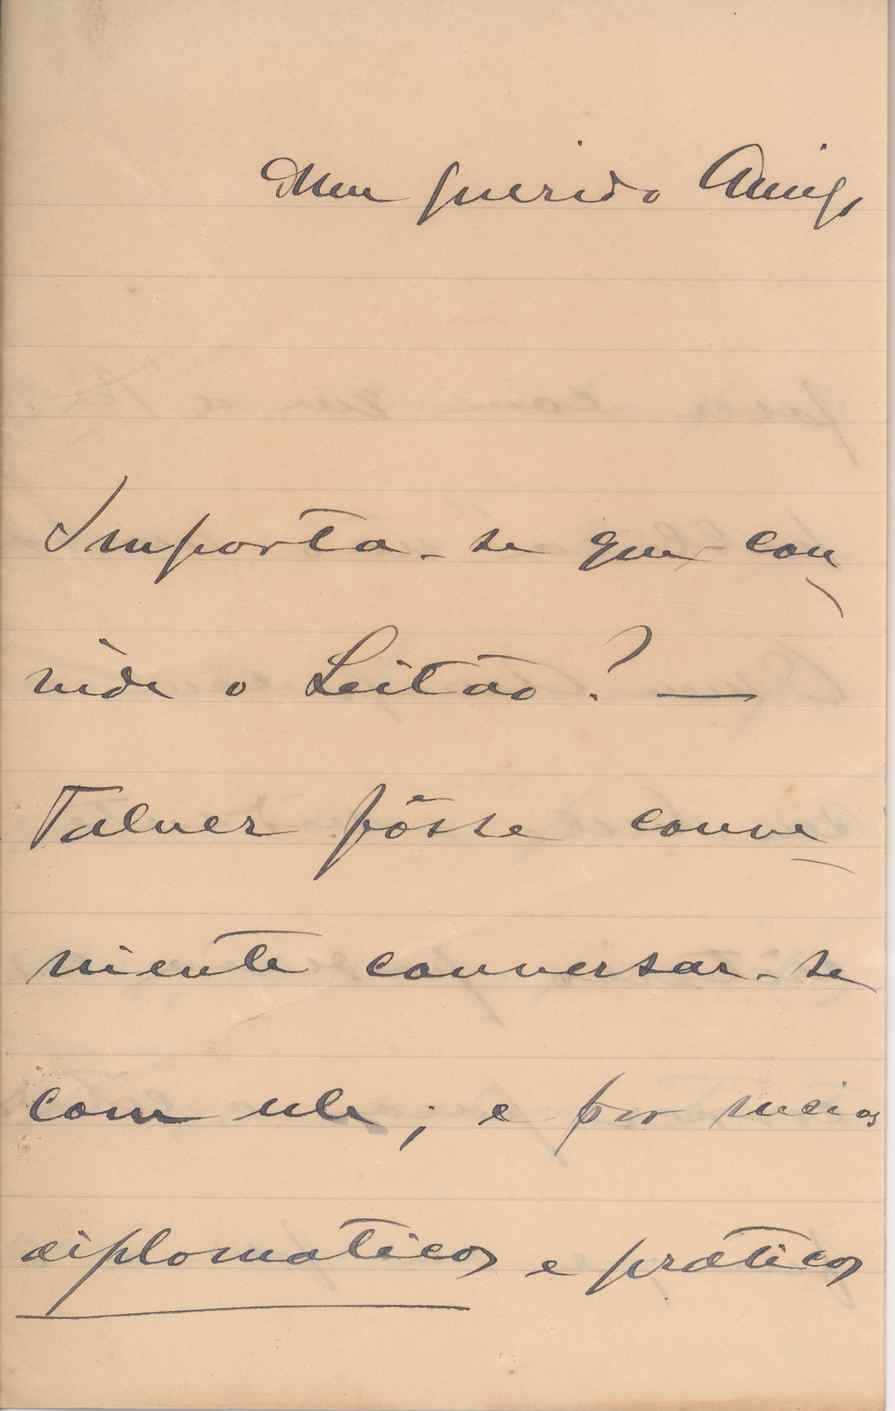 Meu querido Amigo
Importa-se que con
vide o Leitão? —
Talvez fôsse conve
niente conversar-se
com ele; e por meios
diplomaticos e praticos